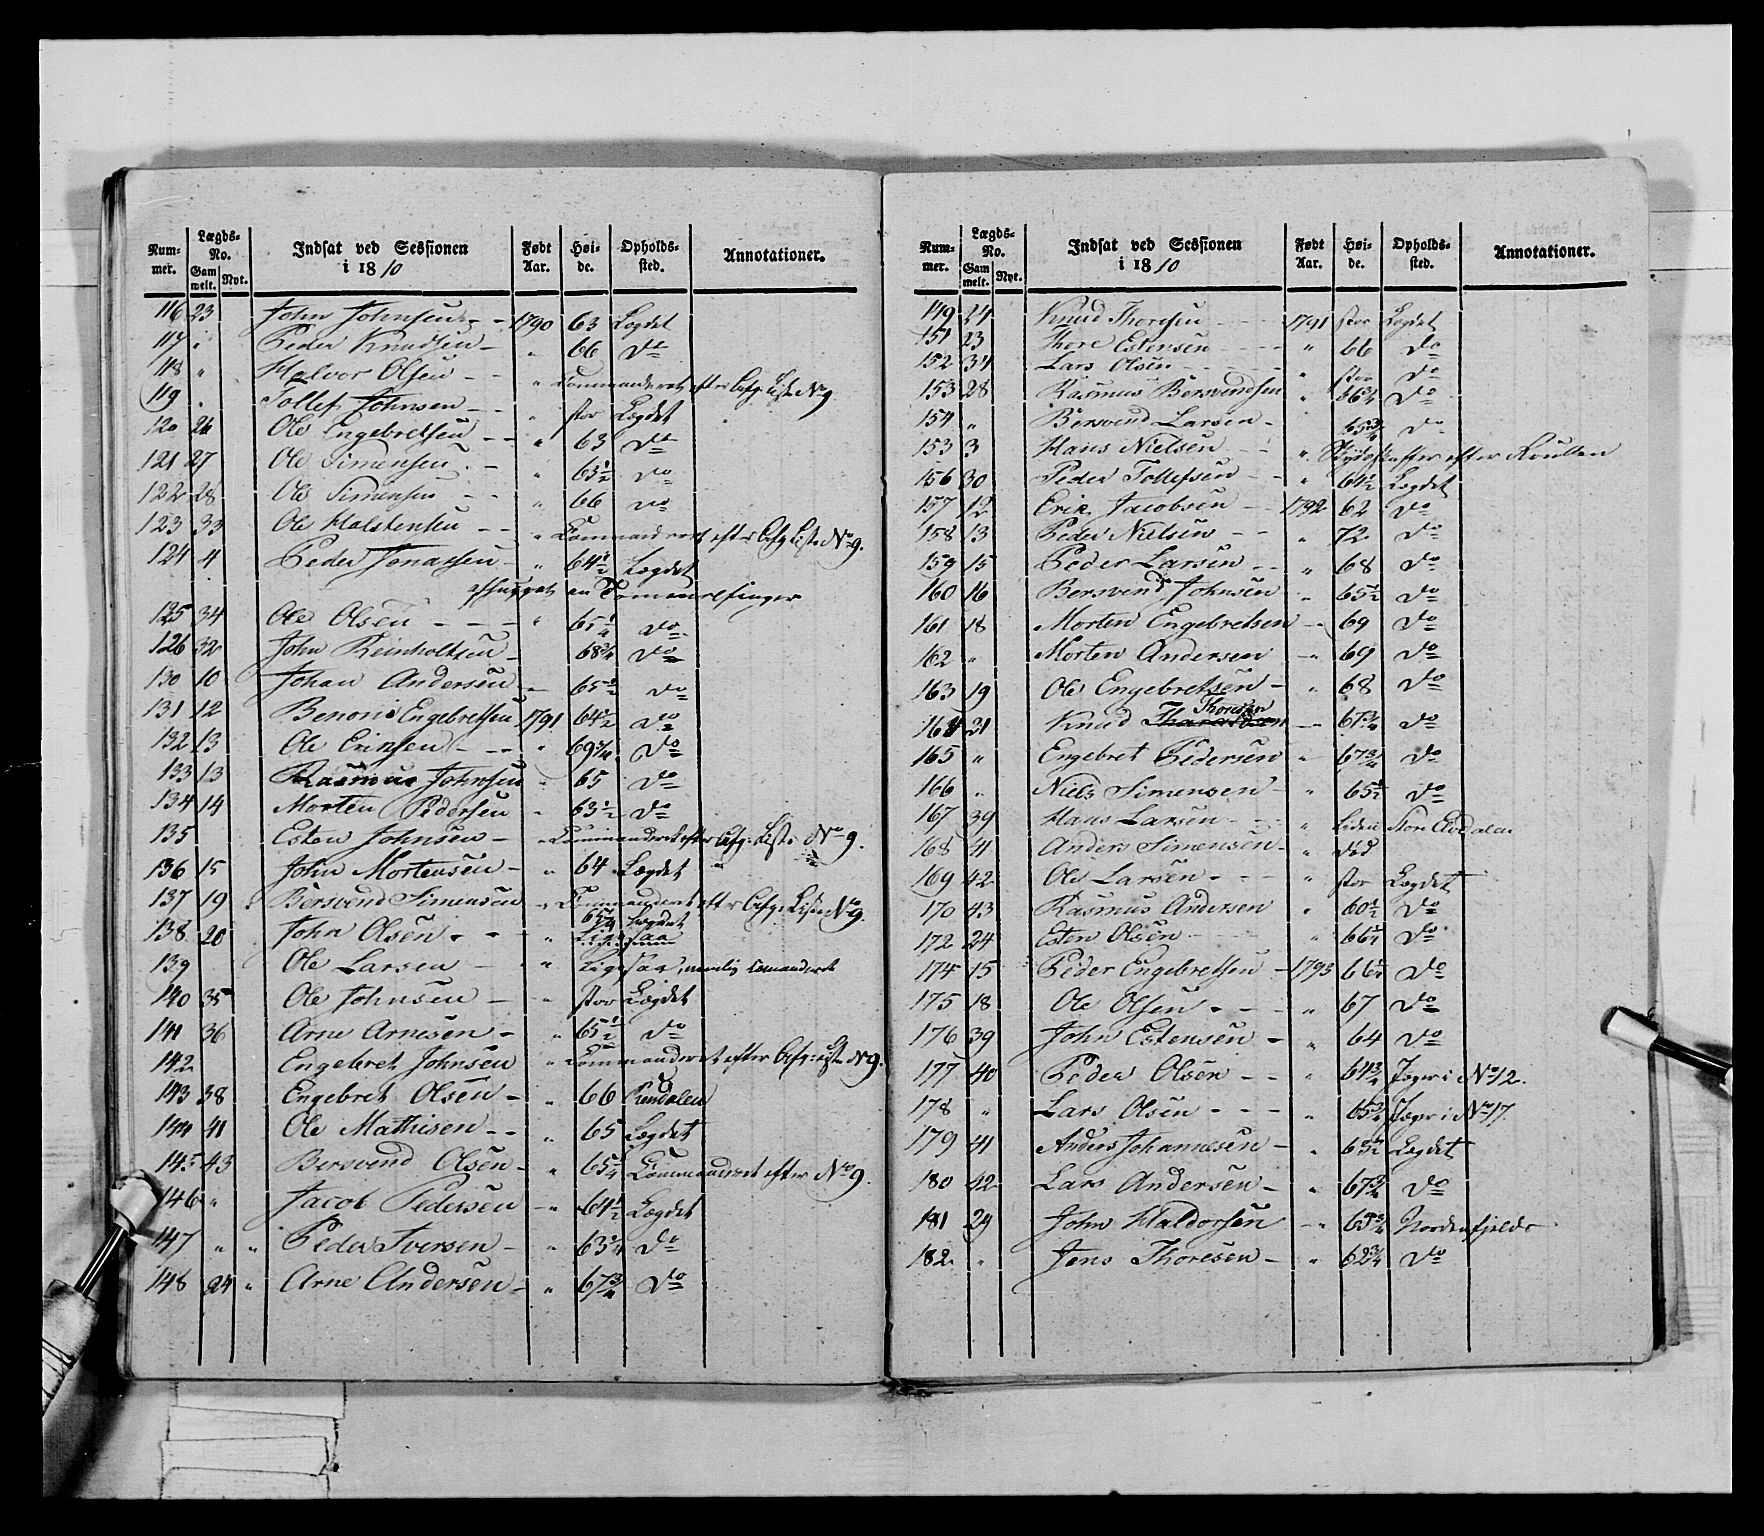 Num-mer. Lægds-No. Gam melt. Nyt. Indsat ved Sessionen i 1810 Født Aar. Høi-de. Opholds-sted. Annotationer.
116 23 John Johnsen - - 1790 63 Lægdet
117 " Peder Knudsen - " 66 Do
118 " Halvor Olsen - - " Commanderet efter Afg: Liste No 9.
119 " Tollef Johnsen - - " stor Lægdet
120 26 Ole Engebretsen - - " 63 Do
121 27 Ole Simensen - - " 63½ Do
122 28 Ole Simensen - - " 66 Do
123 33 Ole Halstensen - - " Commanderet efter Afg Liste No 9.
124 4 Peder Jonassen - " 64½ Lægdet
afhugget en Tommelfinger
125 34 Ole Olsen - - - " 65½ Do
126 32 John Reinholtsen - 68¾ Do
130 10 Johan Andersen - " 65½ Do
131 12 Benoni Engebretsen 1791 64½ Do
132 13 Ole Ericksen - - - " 69¾ Do
133 13 Rasmus Johnsen " 65 Do
134 14 Morten Pedersen " 63½ Do
135 Esten Johnsen - " Commanderet efter Afg: Liste No 9.
136 15 John Mortensen - " 64 Lægdet
137 19 Bersvend Simensen " Commanderet efter Afg: Liste No 9.
138 20 John Olsen - - - " 65¼ Lægdet
Ligesaa
139 Ole Larsen - " Ligesaa, nemlig Comanderet
140 35 Ole Johnsen - " stor Lægdet
141 36 Arne Arnesen - " 65½ Do
142 Engebret Johnsen " Commanderet efter Afg: Liste No 9.
143 38 Engebret Olsen - " 66 Rendalen
144 41 Ole Mathisen - - " 65 Lægdet
145 43 Bersvend Olsen - " 65¼ Commanderet efter No 9.
146 " Jacob Pedersen - " 64½ Lægdet
147 " " Peder Iversen - " 63¼ Do
148 24 " Arne Andersen - " 67¾ Do
Num-mer. Lægds-No. Gam melt. Nyt. Indsat ved Sessionen i 1810 Født Aar. Høi-de. Opholds-sted. Annotationer.
149 24 Knud Thoresen - - - 1791 stor Lægdet
151 23 Thore Estensen - - - " 66 Do
152 34 Lars Olsen - - - " stor Do
153 28 Rasmus Bersvendsen " 66¾ Do
154 " Bersvend Larsen - 65¾ Do
153 3 Hans Nielsen - - " efter Rullen
156 30 Peder Tollefsen - - " 64½ Lægdet
157 12 Erik Jacobsen - - 1792 62 Do
158 13 Peder Nielsen - - " 72 Do
159 15 Peder Larsen - - " 68 Do
160 16 Bersvend Johnsen " 65½ Do
161 18 Morten Engebretsen - " 69 Do
162 " Morten Andersen - " 69 Do
163 19 Ole Engebretsen - " 68 Do
Thoresen
164 31 Knud Tharaldsen - " 67¾ Do
165 " Engebret Pedersen " 67¾ Do
166 " Niels Simensen - " 65½ Do
167 39 Hans Larsen - - - " Liden Stor Elvdalen
168 41 Anders Simensen - " Død
169 42 Ole Larsen - - - " stor Lægdet
170 43 Rasmus Andersen " 60½ Do
172 24 Esten Olsen - - - " 66¼ Do
174 15 Peder Engebretsen - 1793 66¼ Do
175 18 Ole Olsen - - - " 67 Do
176 39 John Estensen - " 64 Do
177 40 Peder Olsen - - " 64¾ Jæger i No 12.
178 " Lars Olsen - - - " 65¾ Jæger i No 17.
179 41 Anders Johannesen - " 63½ Lægdet
180 42 Lars Andersen - " 67¾ Do
181 29 John Haldorsen - " 65¾ Nordenfjelds
182 " Jens Thoresen - " 62¾ Do